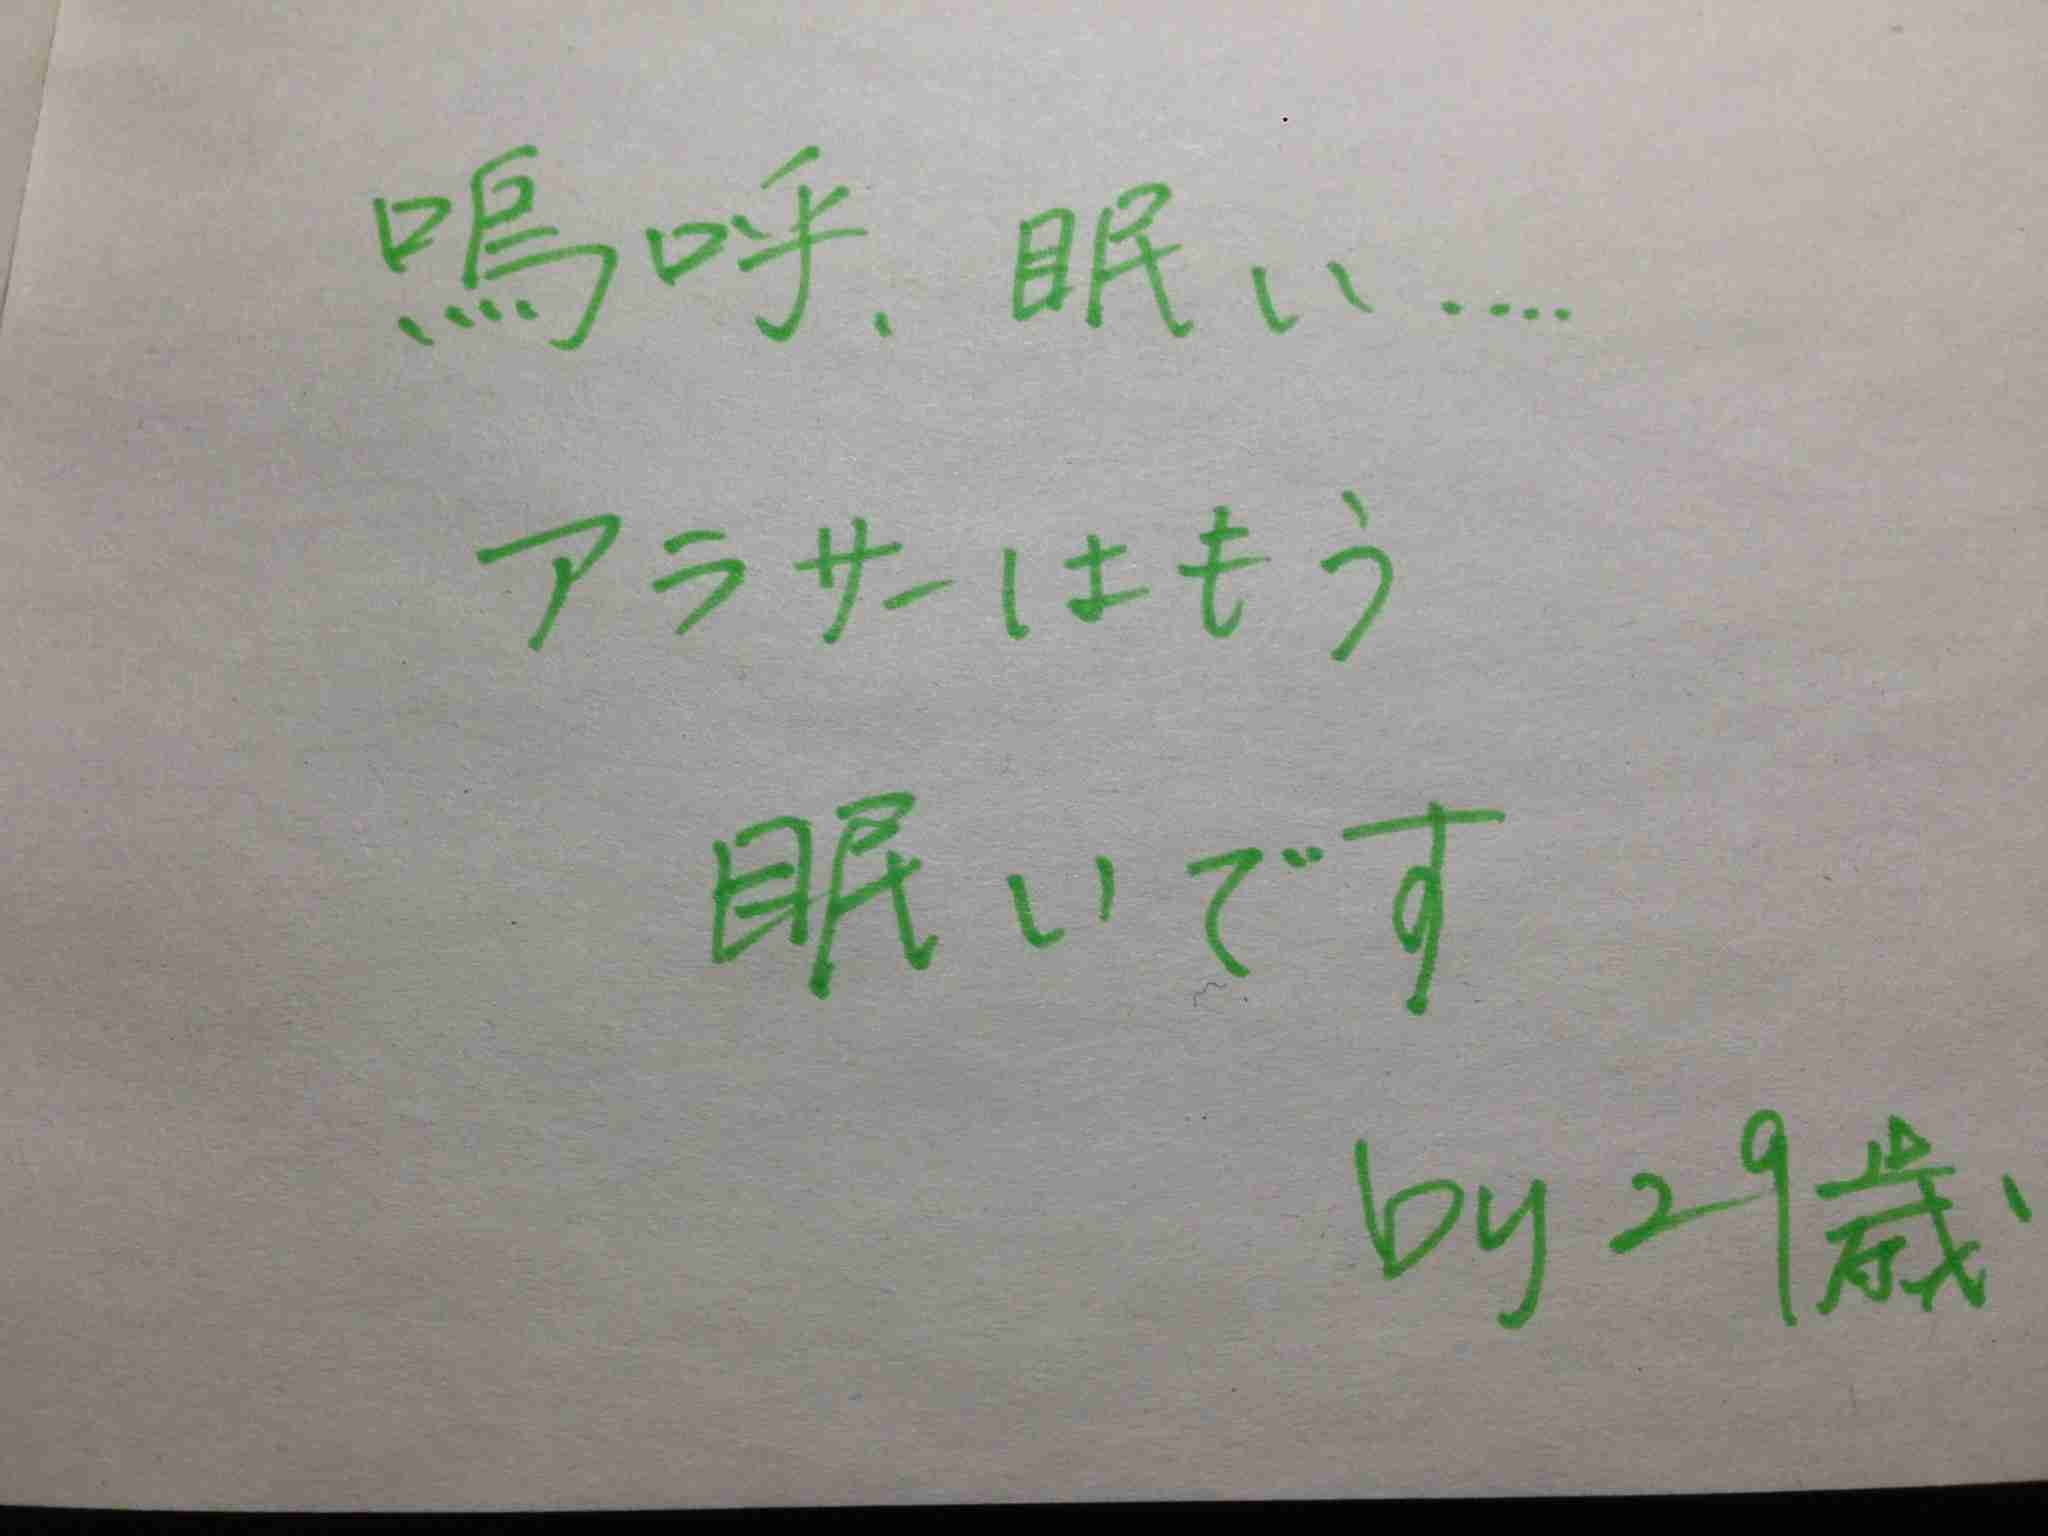 嗚呼、眠い....
アラサーはもう
眠いです
by 29歳、